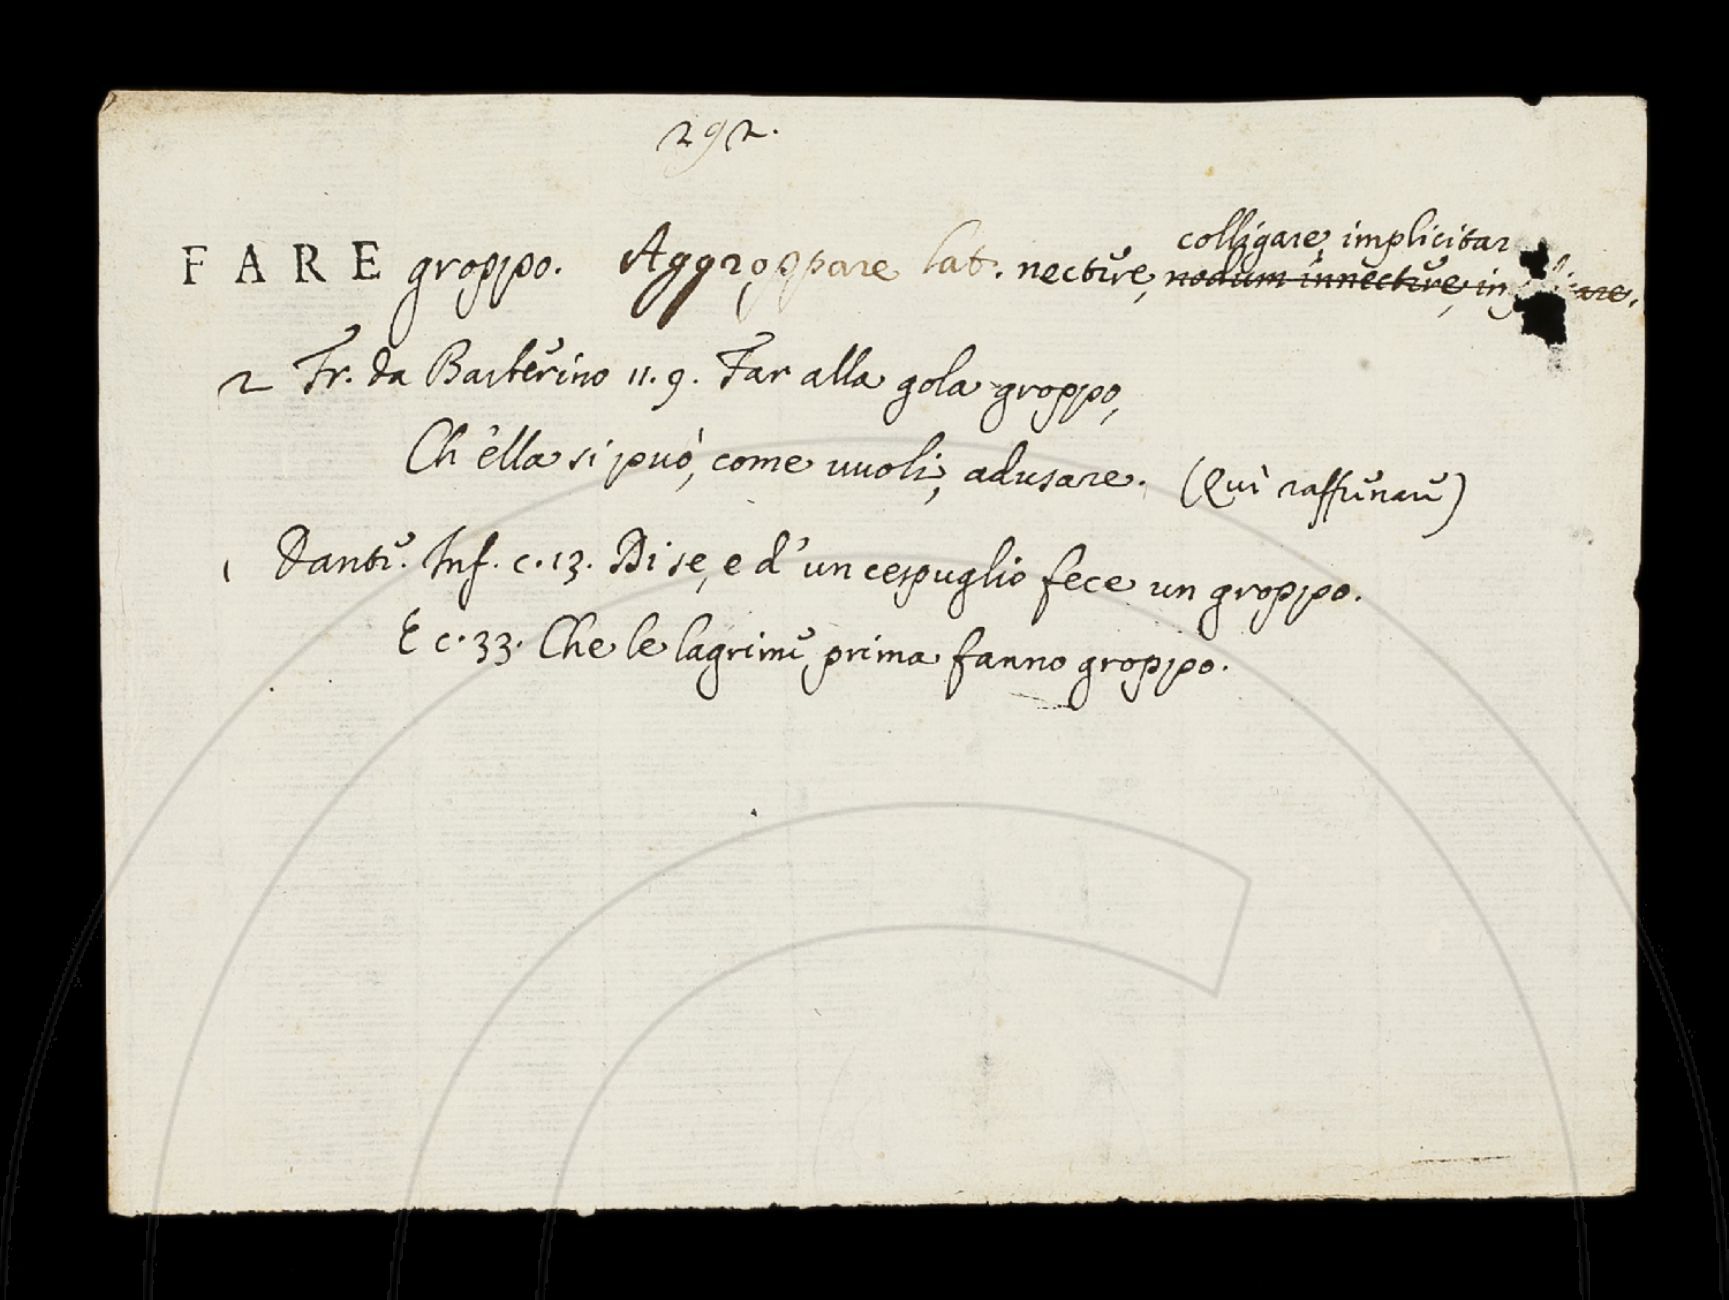 292.
colligare, implicitar
FARE groppo. Aggroppare lat. nectere, nodum innectere, in are.
2 Fr. da Barberino 11. 9. Far alla gola groppo,
Ch'ella si può, come vuoli, adusare. (Qui raffrenare)
1 Dante. Inf. c. 13. Di se, e d'un cespuglio fece un groppo.
E c. 33. Che le lagrime prima fanno groppo.